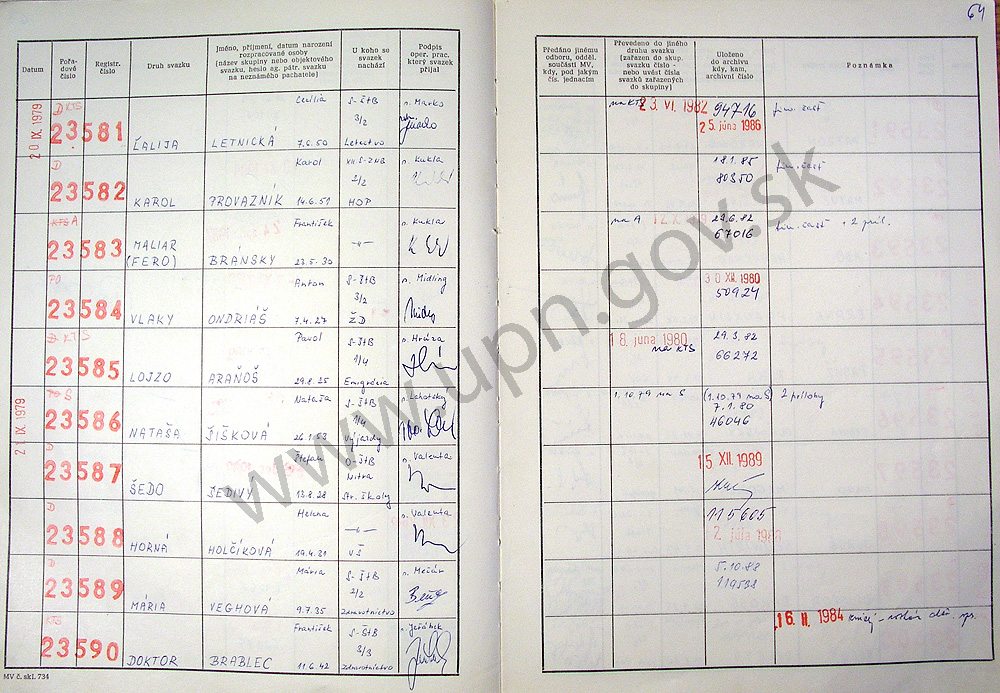 64
Datum
Pořa-
dové
číslo
Registr.
číslo
Druh svazku
Jméno, příjmení, datum narození
rozpracované osoby
(název skupiny nebo objektového
svazku, heslo ag. pátr. svazku
na neznámého pachatele)
U koho se
svazek
nachází
Podpis
oper. prac.
který svazek
přijal
Předáno jinému
odboru, odděl.
součásti MV,
kdy, pod jakým
čís. jednacím
Převedeno do jiného
druhu svazku
(zařazen do skup.
svazku číslo -
nebo uvést čísla
svazků zařazených
do skupiny)
Uloženo
do archivu
kdy, kam,
archivní číslo
Poznámka
20 IX. 1979
D KTS
23581
ĽALIJA
Cecília
LETNICKÁ 7.6.50
S-ŠtB
3/2
Letectvo
n. Marko
na KTS 23. VI. 1982
94716
25. júna 1986
D
23582
KAROL
Karol
PROVAZNÍK 14.6.51
XII S-ZNB
2/2
HOP
n. Kukla
18.1.85
80350
KTS A
23583
MALIAR
(FERO)
František
BRÁNSKY 23.5.30
-"-
n. Kuklar
na A
29.6.82
67016
2 príl.
PO
23584
VLAKY
Anton
ONDRIÁŠ 7.4.27
S-ŠtB
3/2
ŽD
n. Midling
30 XII. 1980
50924
D KTS
23585
LOJZO
Pavol
ARAŇOŠ 29.8.25
S-ŠtB
1/4
Emigrácia
n. Hrúza
18. júna 1980
na KTS
29.3.82
66272
21 IX. 1979
PO S
23586
NATAŠA
Nataša
ŠIŠKOVÁ 26.1.53
S-ŠtB
1/4
Výjazdy
n. Lehotský
1.10.79 na S
(1.10.79 na S)
7.1.80
46046
2 prílohy
D
23587
ŠEDO
Štefan
ŠEDIVÝ 13.8.28
O-ŠtB
Nitra
Str. školy
n. Valenta
15 XII. 1989
D
23588
HORNÁ
Helena
HOLČÍKOVÁ 19.4.31
-"-
VŠ
n. Valenta
115605
2. júla 198
D
23589
MÁRIA
Mária
VEGHOVÁ 9.7.35
S-ŠtB
2/2
Zdravotníctvo
n. Mečár
5.10.88
119538
KTS
23590
DOKTOR
František
BRABLEC 11.6.42
S-ŠtB
3/3
Zdravotníctvo
n. Jeřábek
16. II. 1984
MV č. skl. 734
www.upn.gov.sk